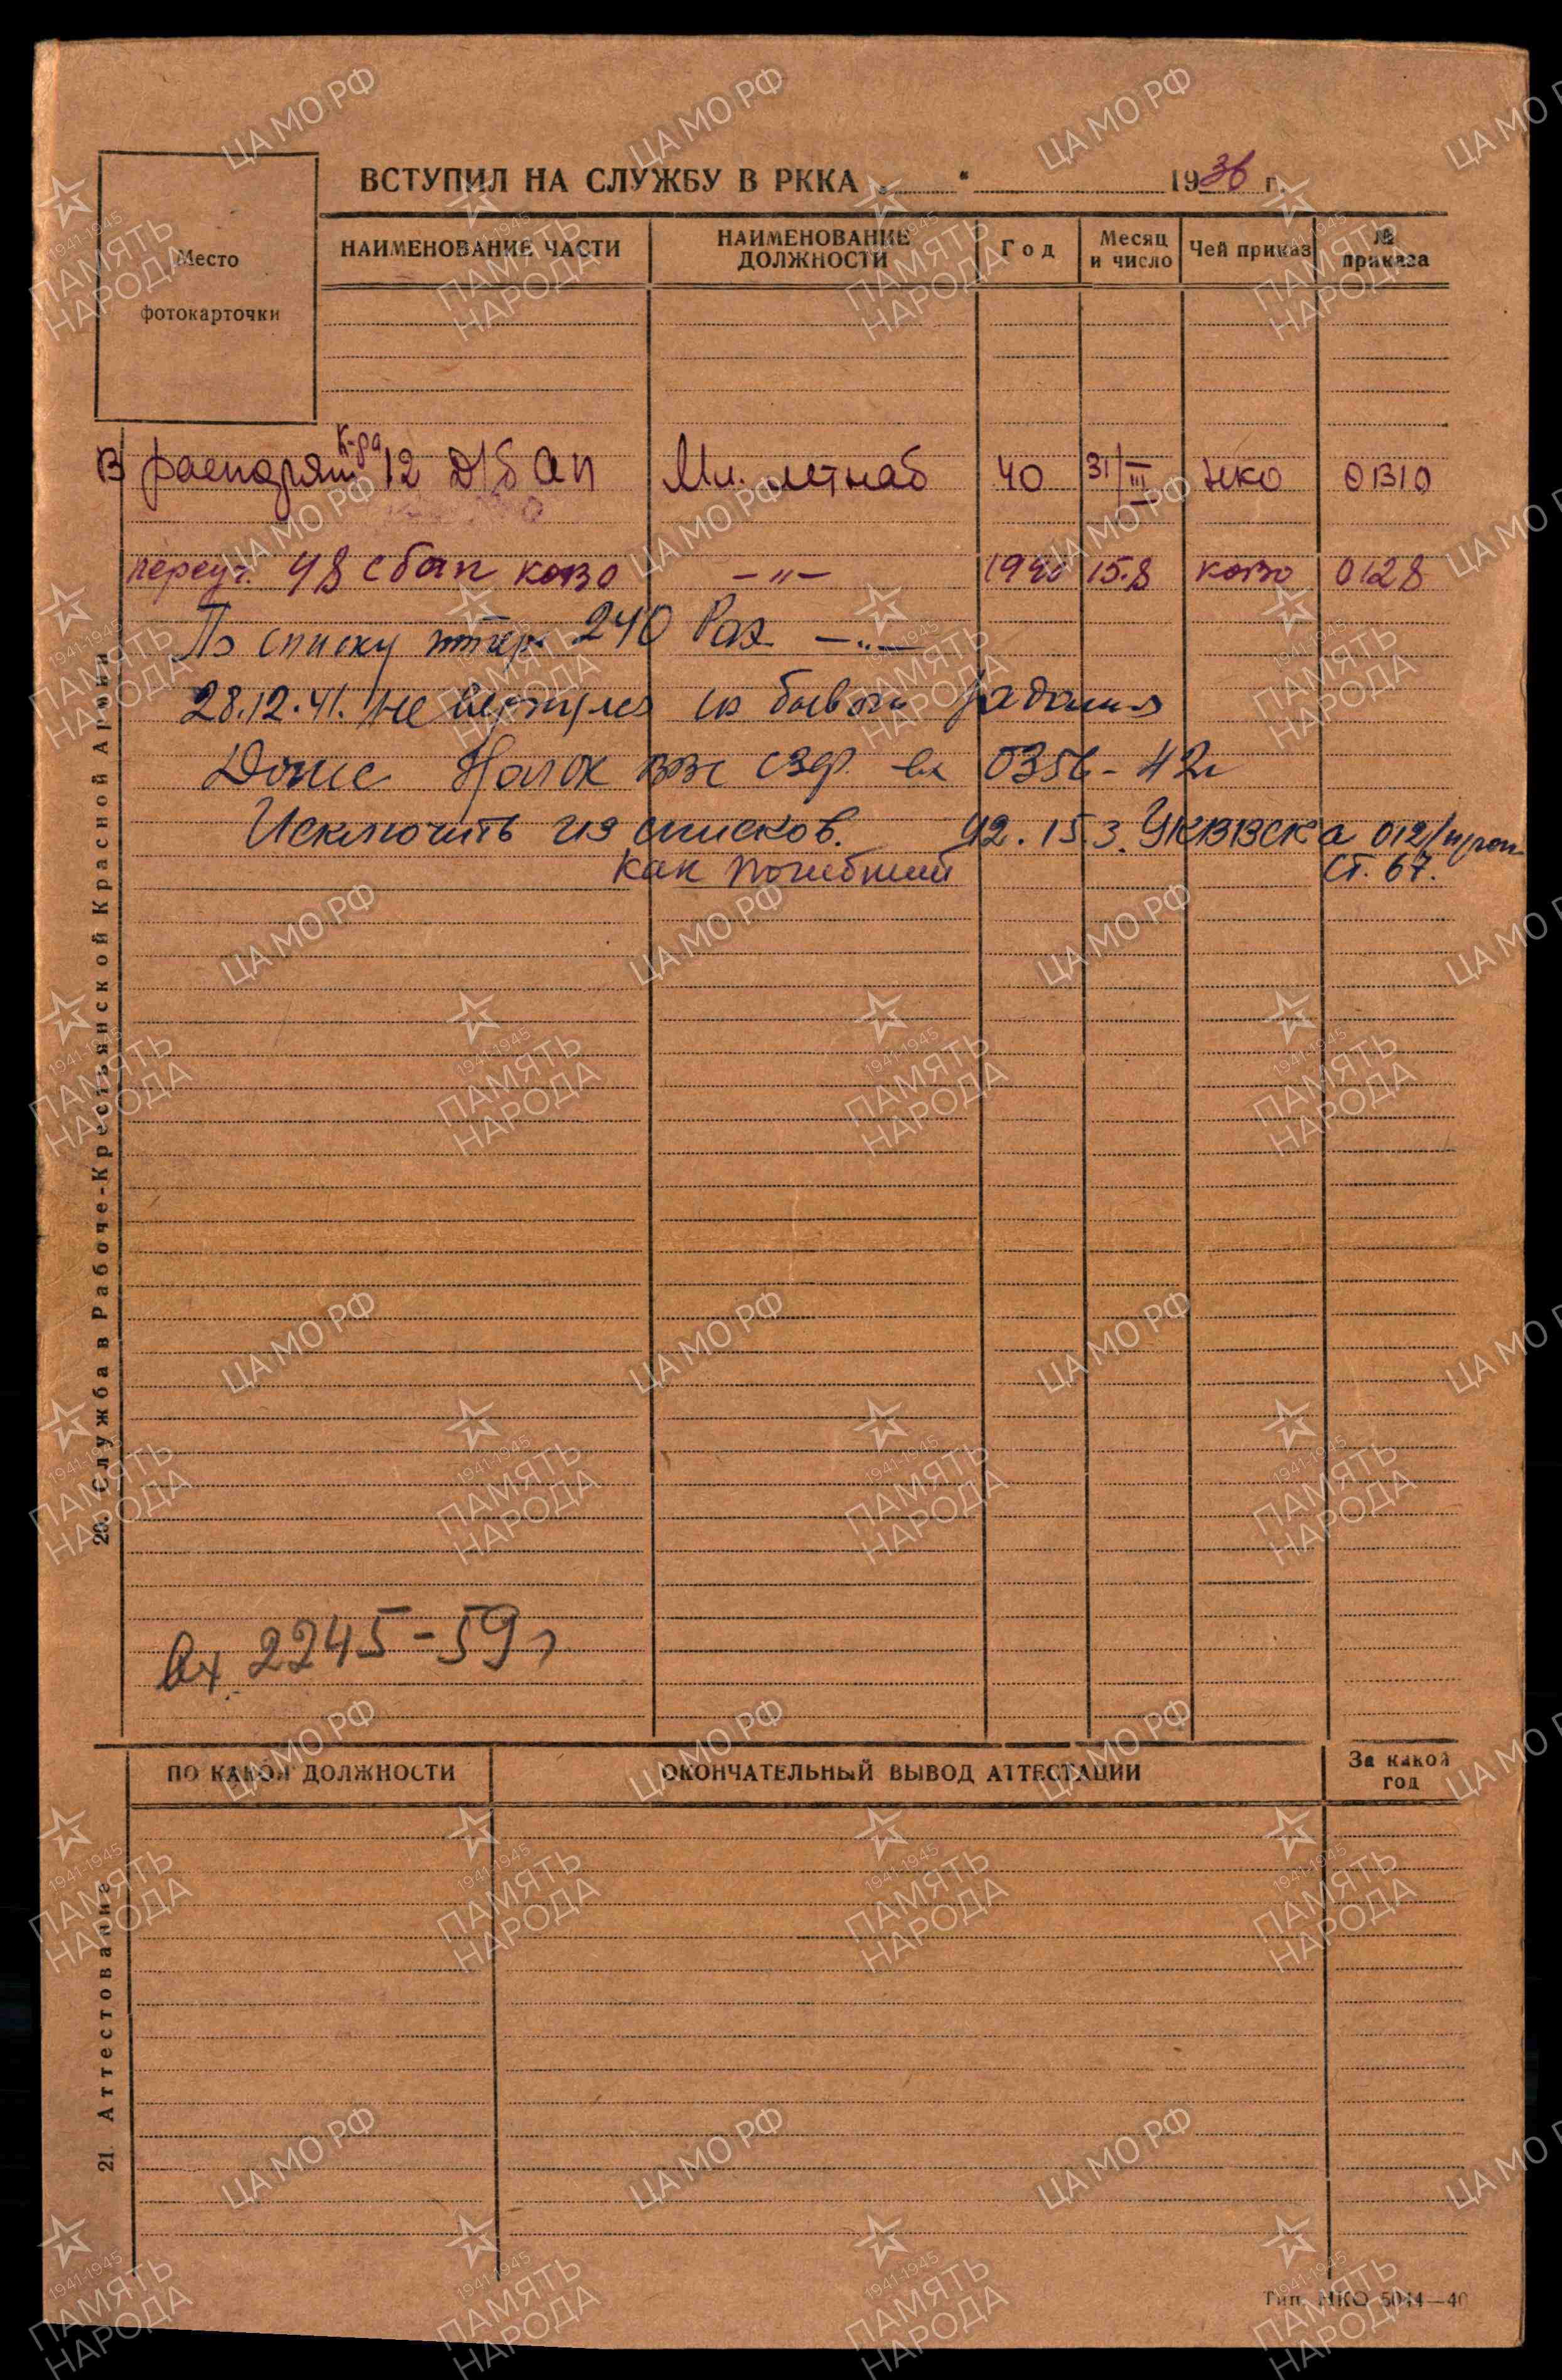 ВСТУПИЛ НА СЛУЖБУ В РККА „ “ 1936 г.
Место
фотокарточки
НАИМЕНОВАНИЕ ЧАСТИ
НАИМЕНОВАНИЕ ДОЛЖНОСТИ
Год
Месяц и число
Чей приказ
№ приказа
В распоряж к-ра 12 ДБАП Мл. летнаб 40 31/III НКО 01310
переуч. 48 сбап КОВО —"— 1940 15.8 КОВО 0128
По списку потер. 240 —"—
28.12.41. не вернулся с боевого задания
Донес ВВС вх 0356-42г
Исключить из списков. 42. 15.3. УКВВСКА 012/
как погибший ст. 67.
20. Служба в Рабоче-Крестьянской Красной Армии
вх. 2245-59г
ПО КАКОЙ ДОЛЖНОСТИ
ОКОНЧАТЕЛЬНЫЙ ВЫВОД АТТЕСТАЦИИ
За какой год
21. Аттестование
Тип. НКО 5044—40
ЦАМО РФ
1941-1945
ПАМЯТЬ
НАРОДА